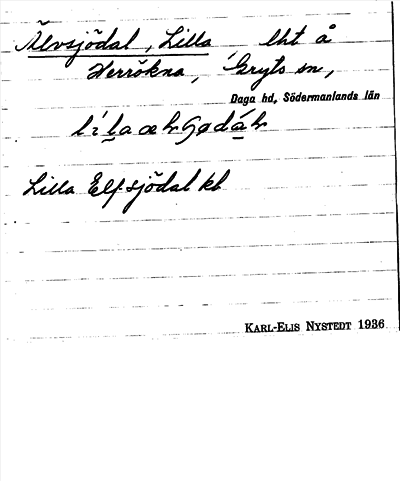 Älvsjödal, Lilla, lht å
Herrökna, Gryts sn,
Daga hd, Södermanlands län
Lilla Elfsjödal kb
KARL-ELIS NYSTEDT 1936